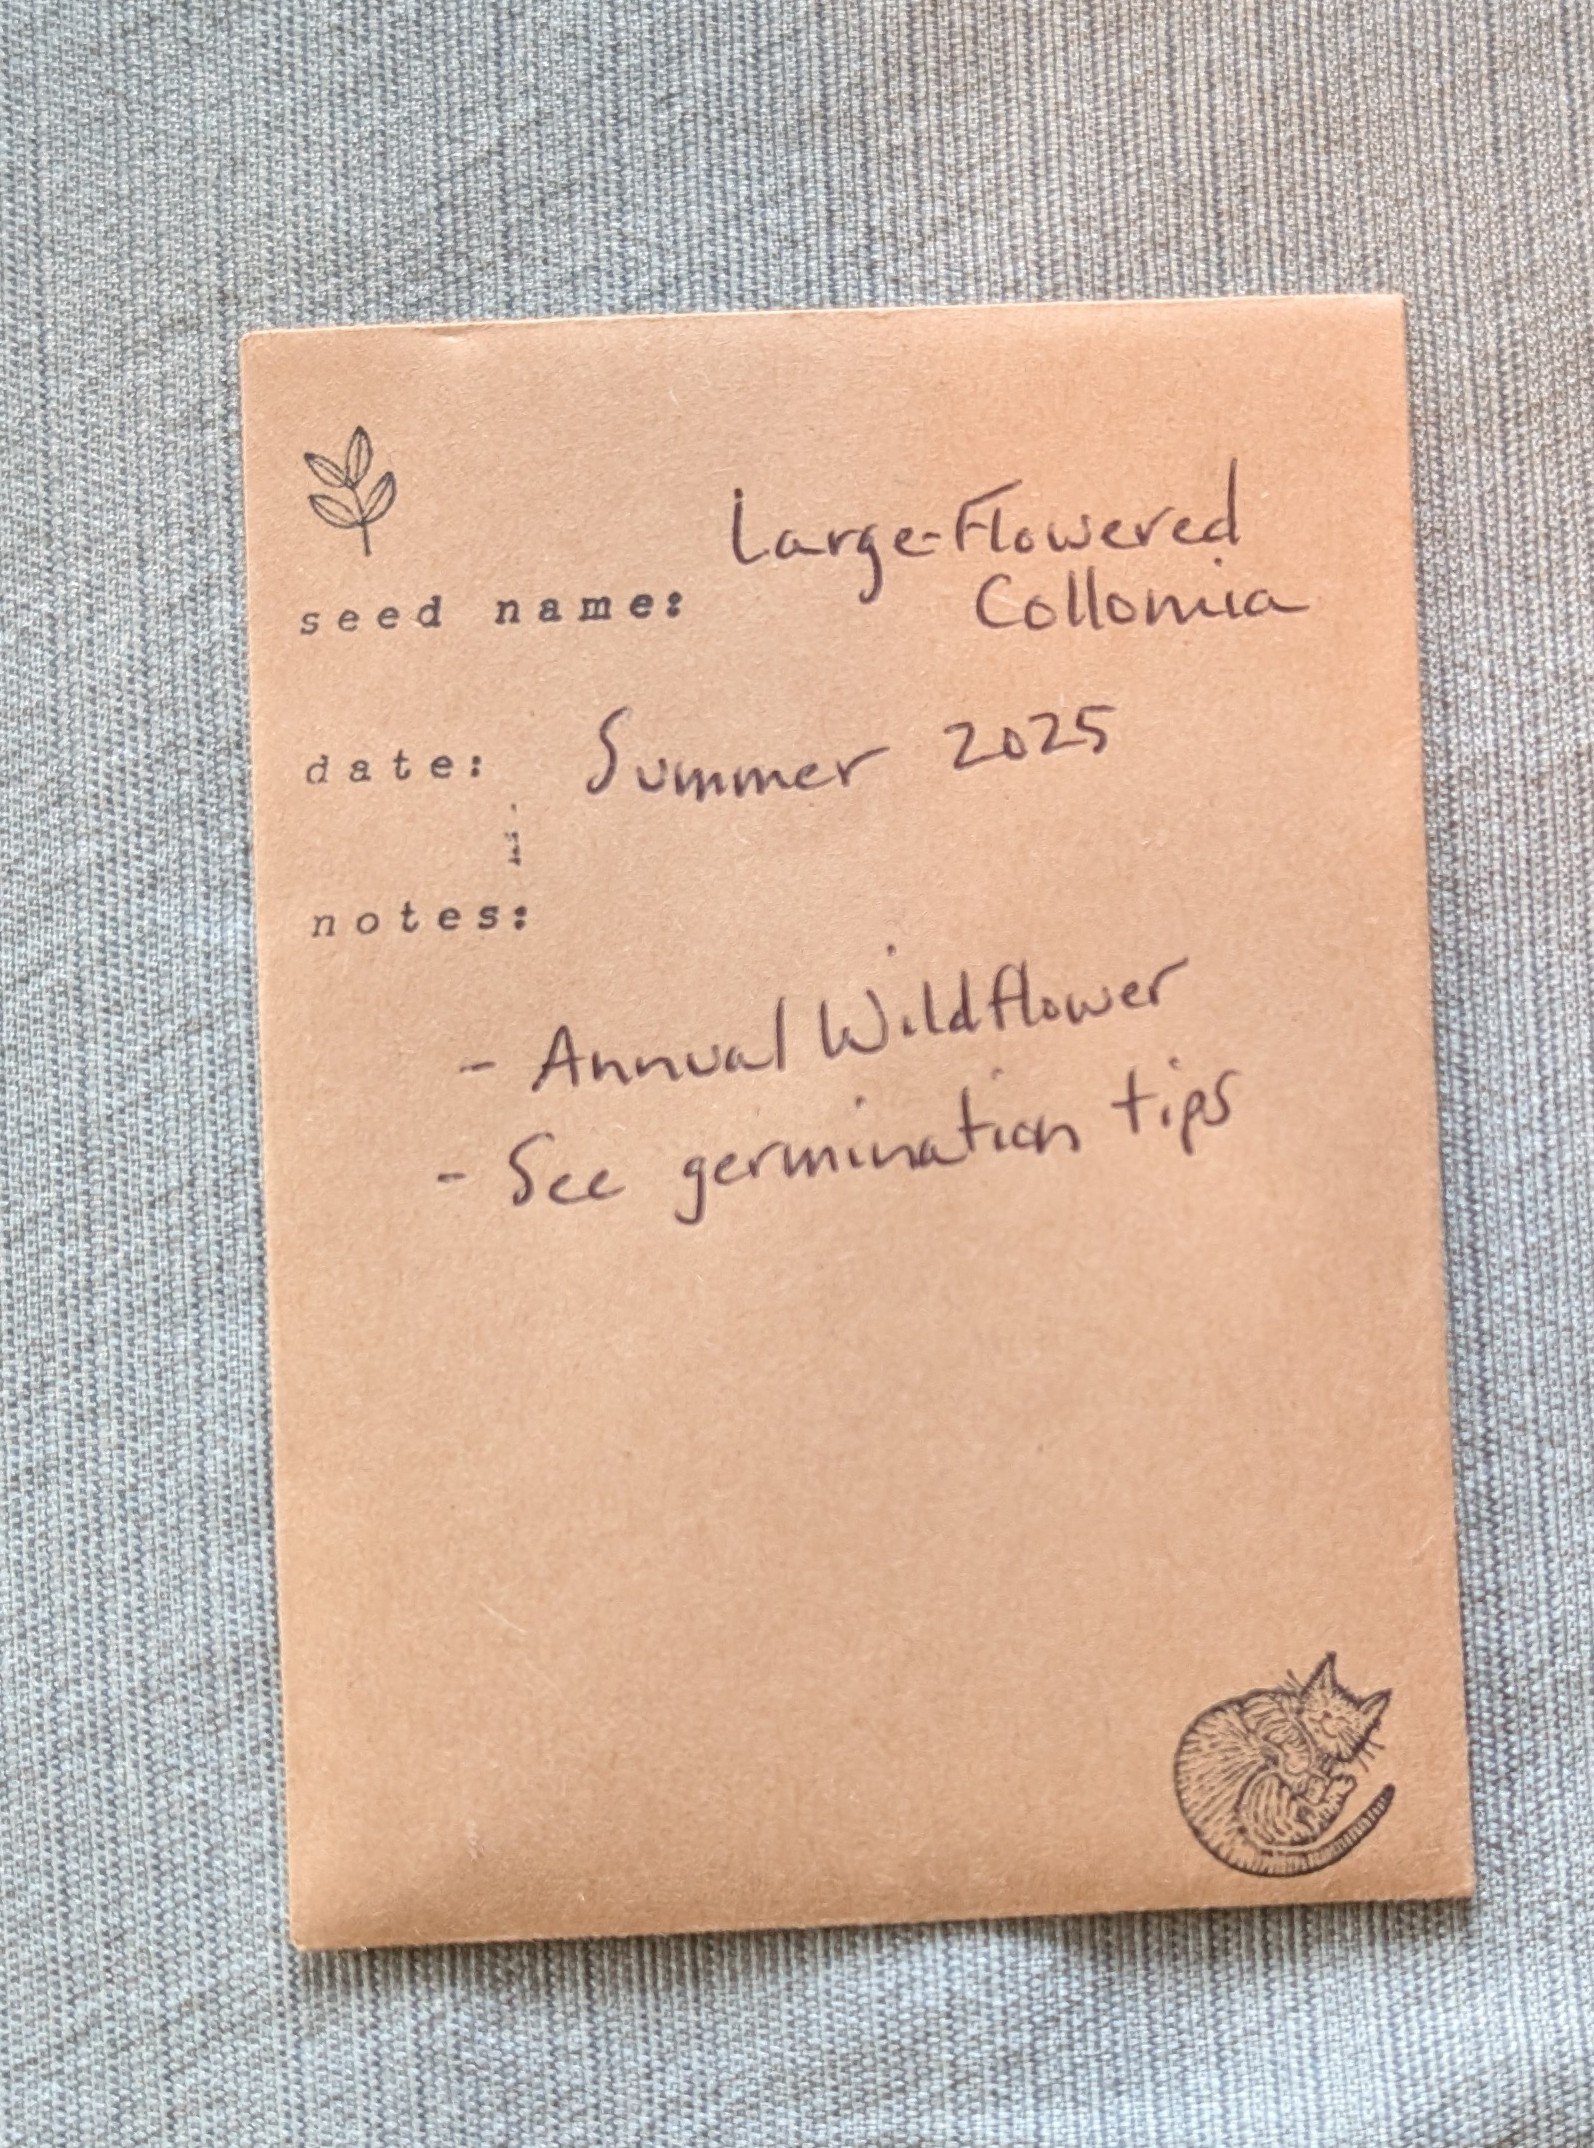 Large-Flowered
seed name: Collomia
date: Summer 2025
notes:
- Annual Wildflower
- See germination tips